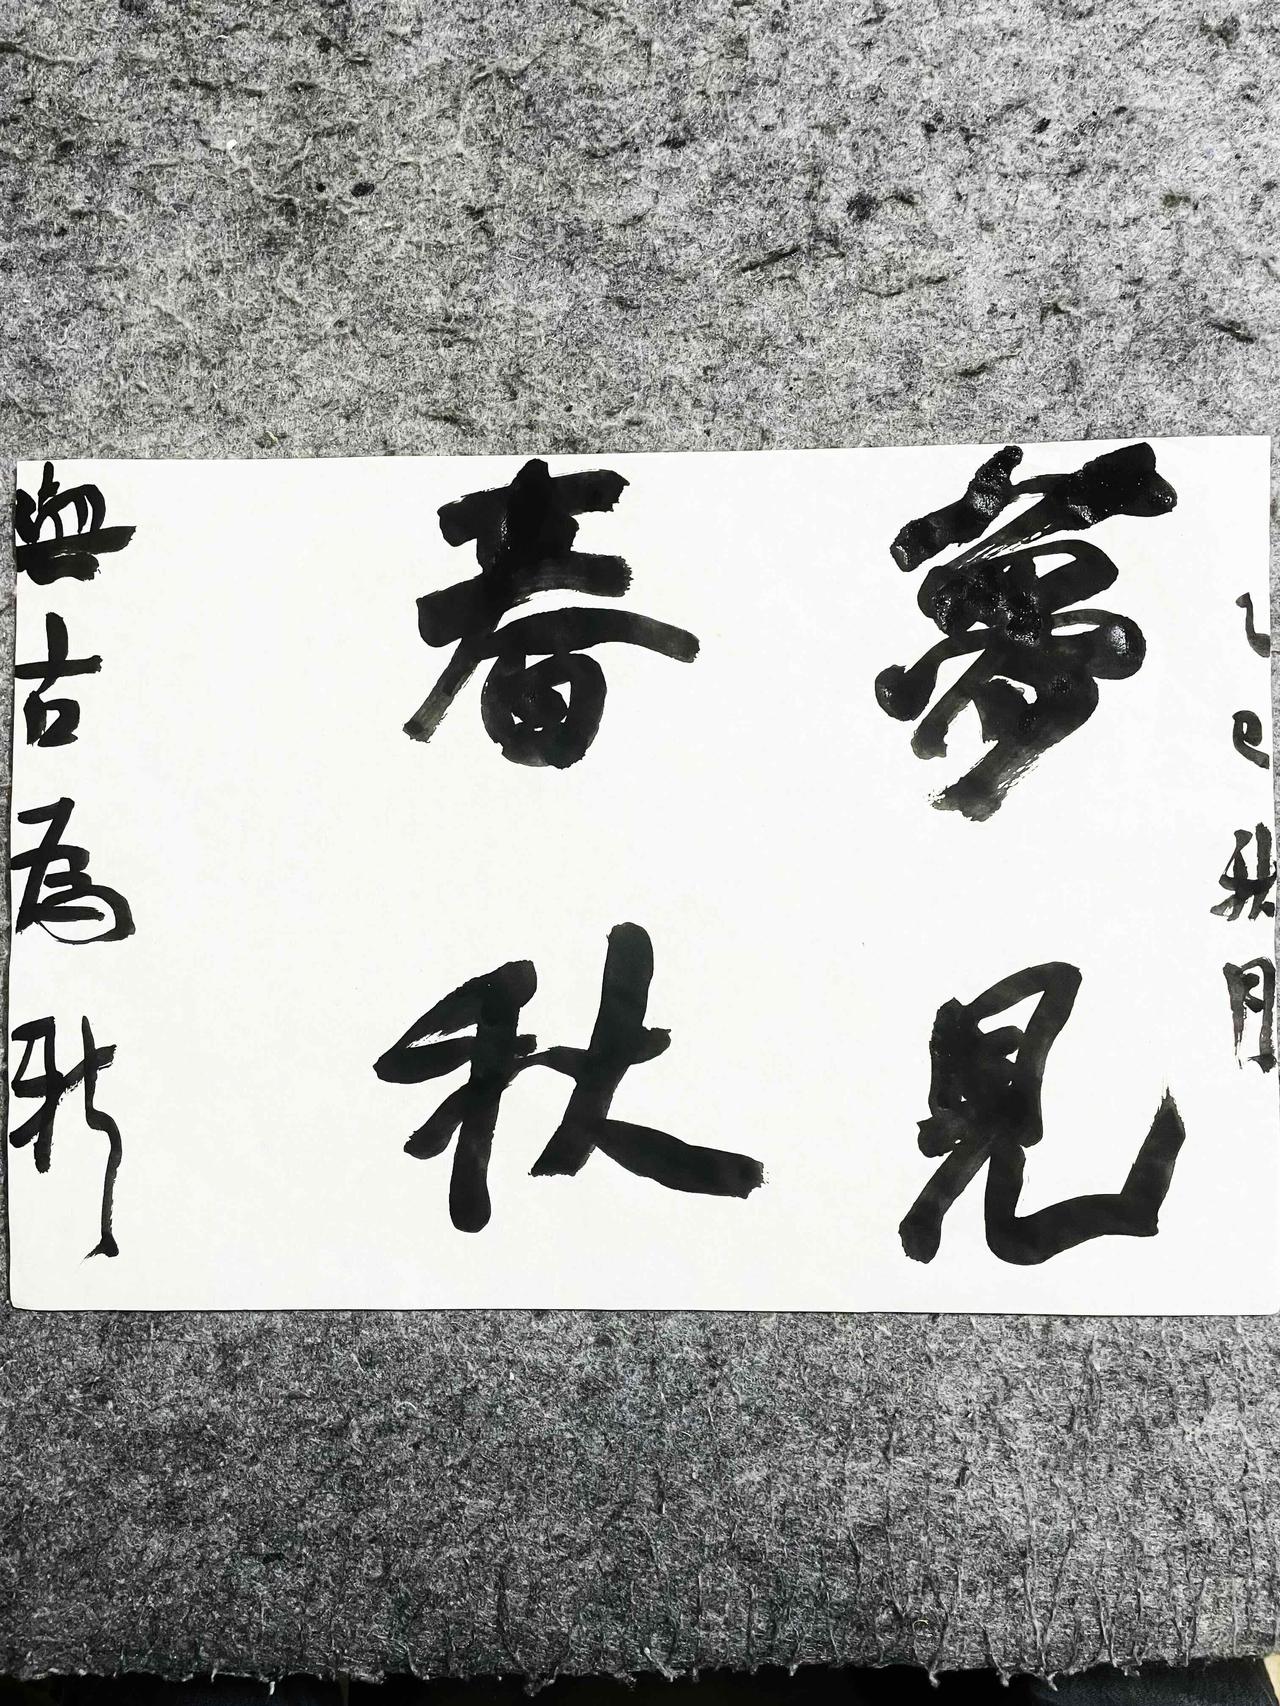 乙巳秋月
夢見
春秋
與古為新